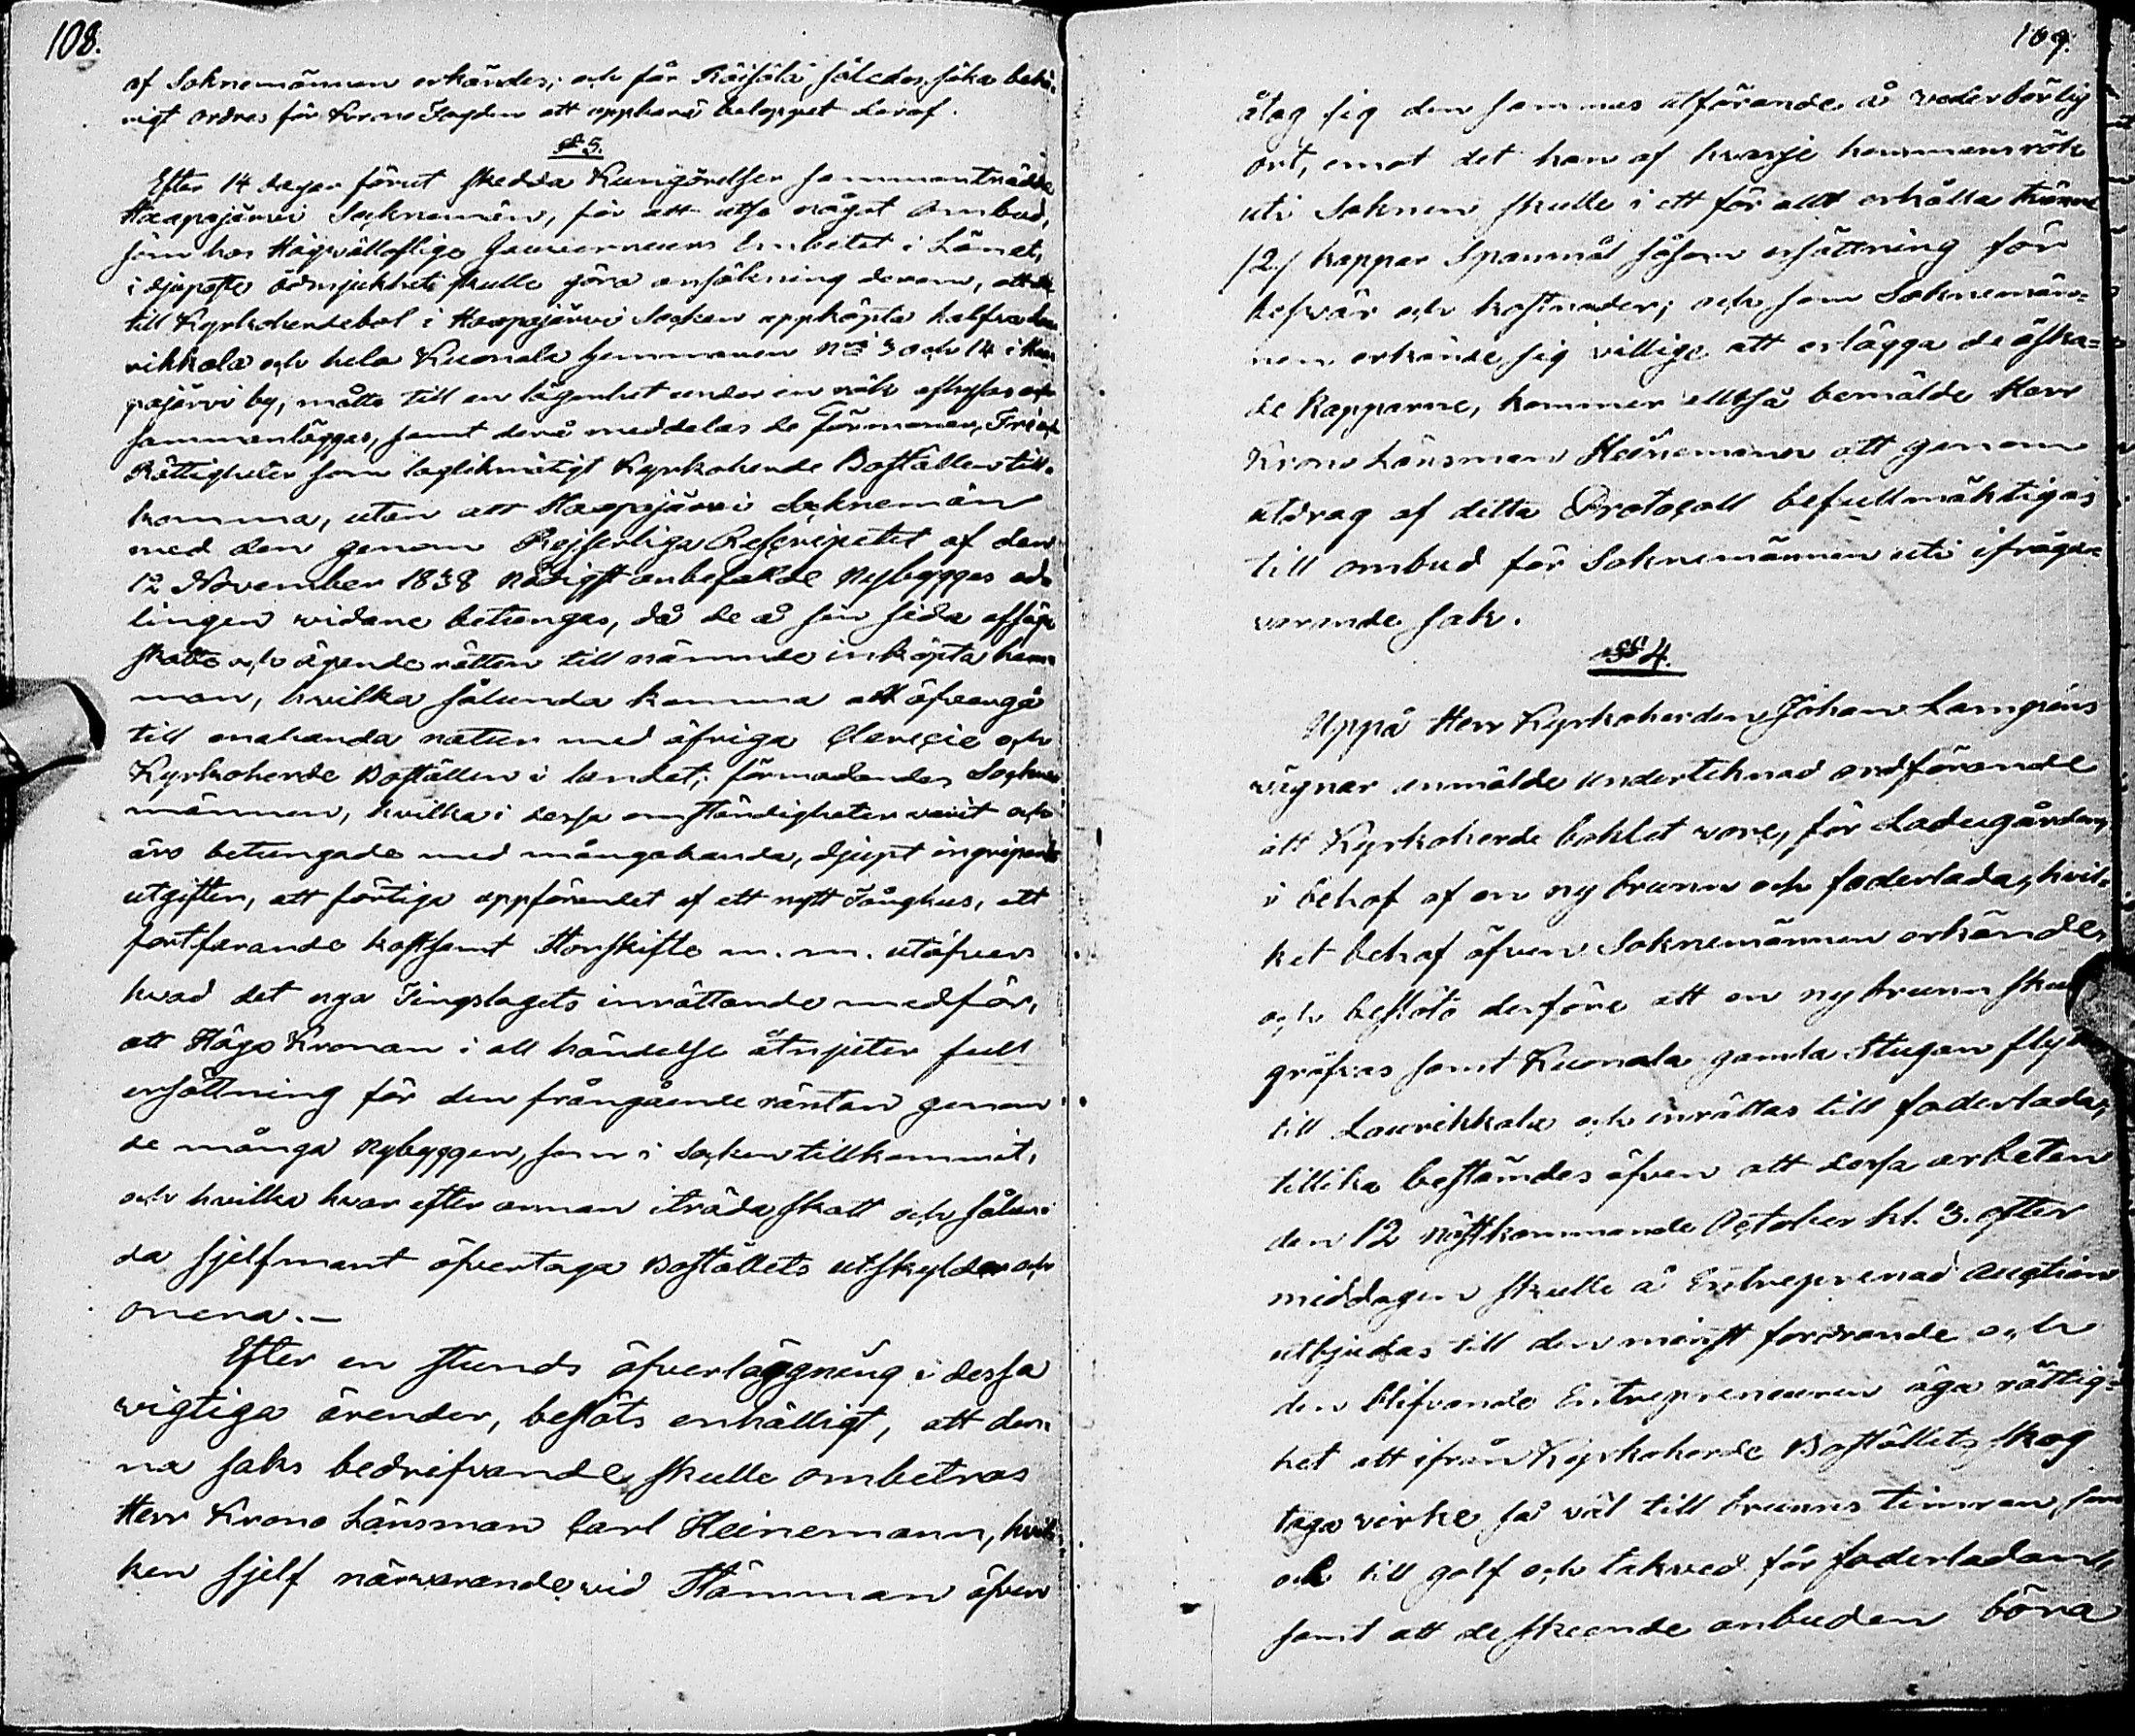 108.
af Soknemännen erkändes; och får Räisälä således söka behö-
rigt ordres för Krono Fogden att uppbära beloppet deraf.
§ 5.
Efter 14 dagar förut skedda Kungörelser sammanträdde
Haapajärvi Socknemän, för att utse något Ombud,
som hos Högvällofliga Gouverneurs Embetet i Länet,
i djupaste ödmjukhet skulle göra ansökning derom, att de
till Kyrkoherdebol i Haapajärvi Socken uppköpta halfva Lau-
rikkala och hela Kuonala hemmanen No 3 och 14 i Haa-
pajärvi by, måtte till en lägenhet under en rök afhysas och
sammanläggas, samt derå meddelas de Förmoner, Fri och
Rättigheter som laglikmätigt Kyrkoherde Boställen till-
komma, utan att Haapajärvi Socknemän
med den genom Kejserliga Rescriptet af den
12 November 1838 nådigst anbefalde Nybygges od-
lingen vidare betungas, då de å sin sida afsäga
skatte och ägande rätten till nämnde inköpta hem-
man, hvilka sålunda komma att öfvergå
till enahanda natur med öfriga Clericie och
Kyrkoherde Boställen i landet; förmodandes Sockne-
männen, hvilka i dessa omständigheter varit och
äro betungade med mångahanda, djupt ingripande
utgifter, att förtiga uppförandet af ett nytt Fånghus, ett
fortfarande kostsamt Storskifte m. m. utöfver
hvad det nya Tingslagets inrättande medför,
att Höga Kronan i all händelse åtnjuter full
ersättning för den frångående räntan genom
de många Nybyggen, som i Socken tillkommit,
och hvilka hvar efter annan iträda skatt och sålun-
da sjelfmant öfvertaga Boställets utskylder och
onera.-
Efter en stunds öfverläggning i dessa
vigtiga ärender, beslöts enhälligt, att den-
na saks bedrifvande skulle ombetros
Herr Krono Länsman Carl Heinemann, hvil-
ken sjelf närvarande vid Stämman äfven
109.
åtog sig den sammas utförande å vederbörlig
ort, emot det han af hvarje hemmansrök
uti Soknen skulle i ett för allt erhålla tvänne
/2/ kappar Spanmål såsom ersättning för
besvär och kostnader; och som Soknemän-
nen erkände sig villige att erlägga de äska-
de kapparne, kommer alltså bemälde Herr
Krono Länsman Heinemann att genom
utdrag af detta Protocoll befullmäktigas
till ombud för Soknemännen uti ifråga-
varande sak.
§ 4.
Uppå Herr Kyrkoherden Johan Lamgréns
vägnar anmälde undertecknad ordförande
att Kyrkoherde bohlet vore, för Ladugården,
i behof af en ny brunn och foderlada, hvil-
ket behof äfven Soknemännen erkände,
och beslöto derföre att en ny brunn
gräfvas samt Kuonala gamla stugan
till Laurikkala och inrättas till foderlada,
tillika bestämdes äfven att dessa arbeten
den 12 nästkommande October kl. 3. efter
middagen skulle å Entreprenad Auction
utbjudas till den minst fordrande och
den blifvande Entrepreneuren äga rättig-
het att ifrån Kyrkoherde Boställets skog
taga virke så väl till brunns timran, som
ock till golf och takved för foderladan,
samt att de skeende anbuden böra